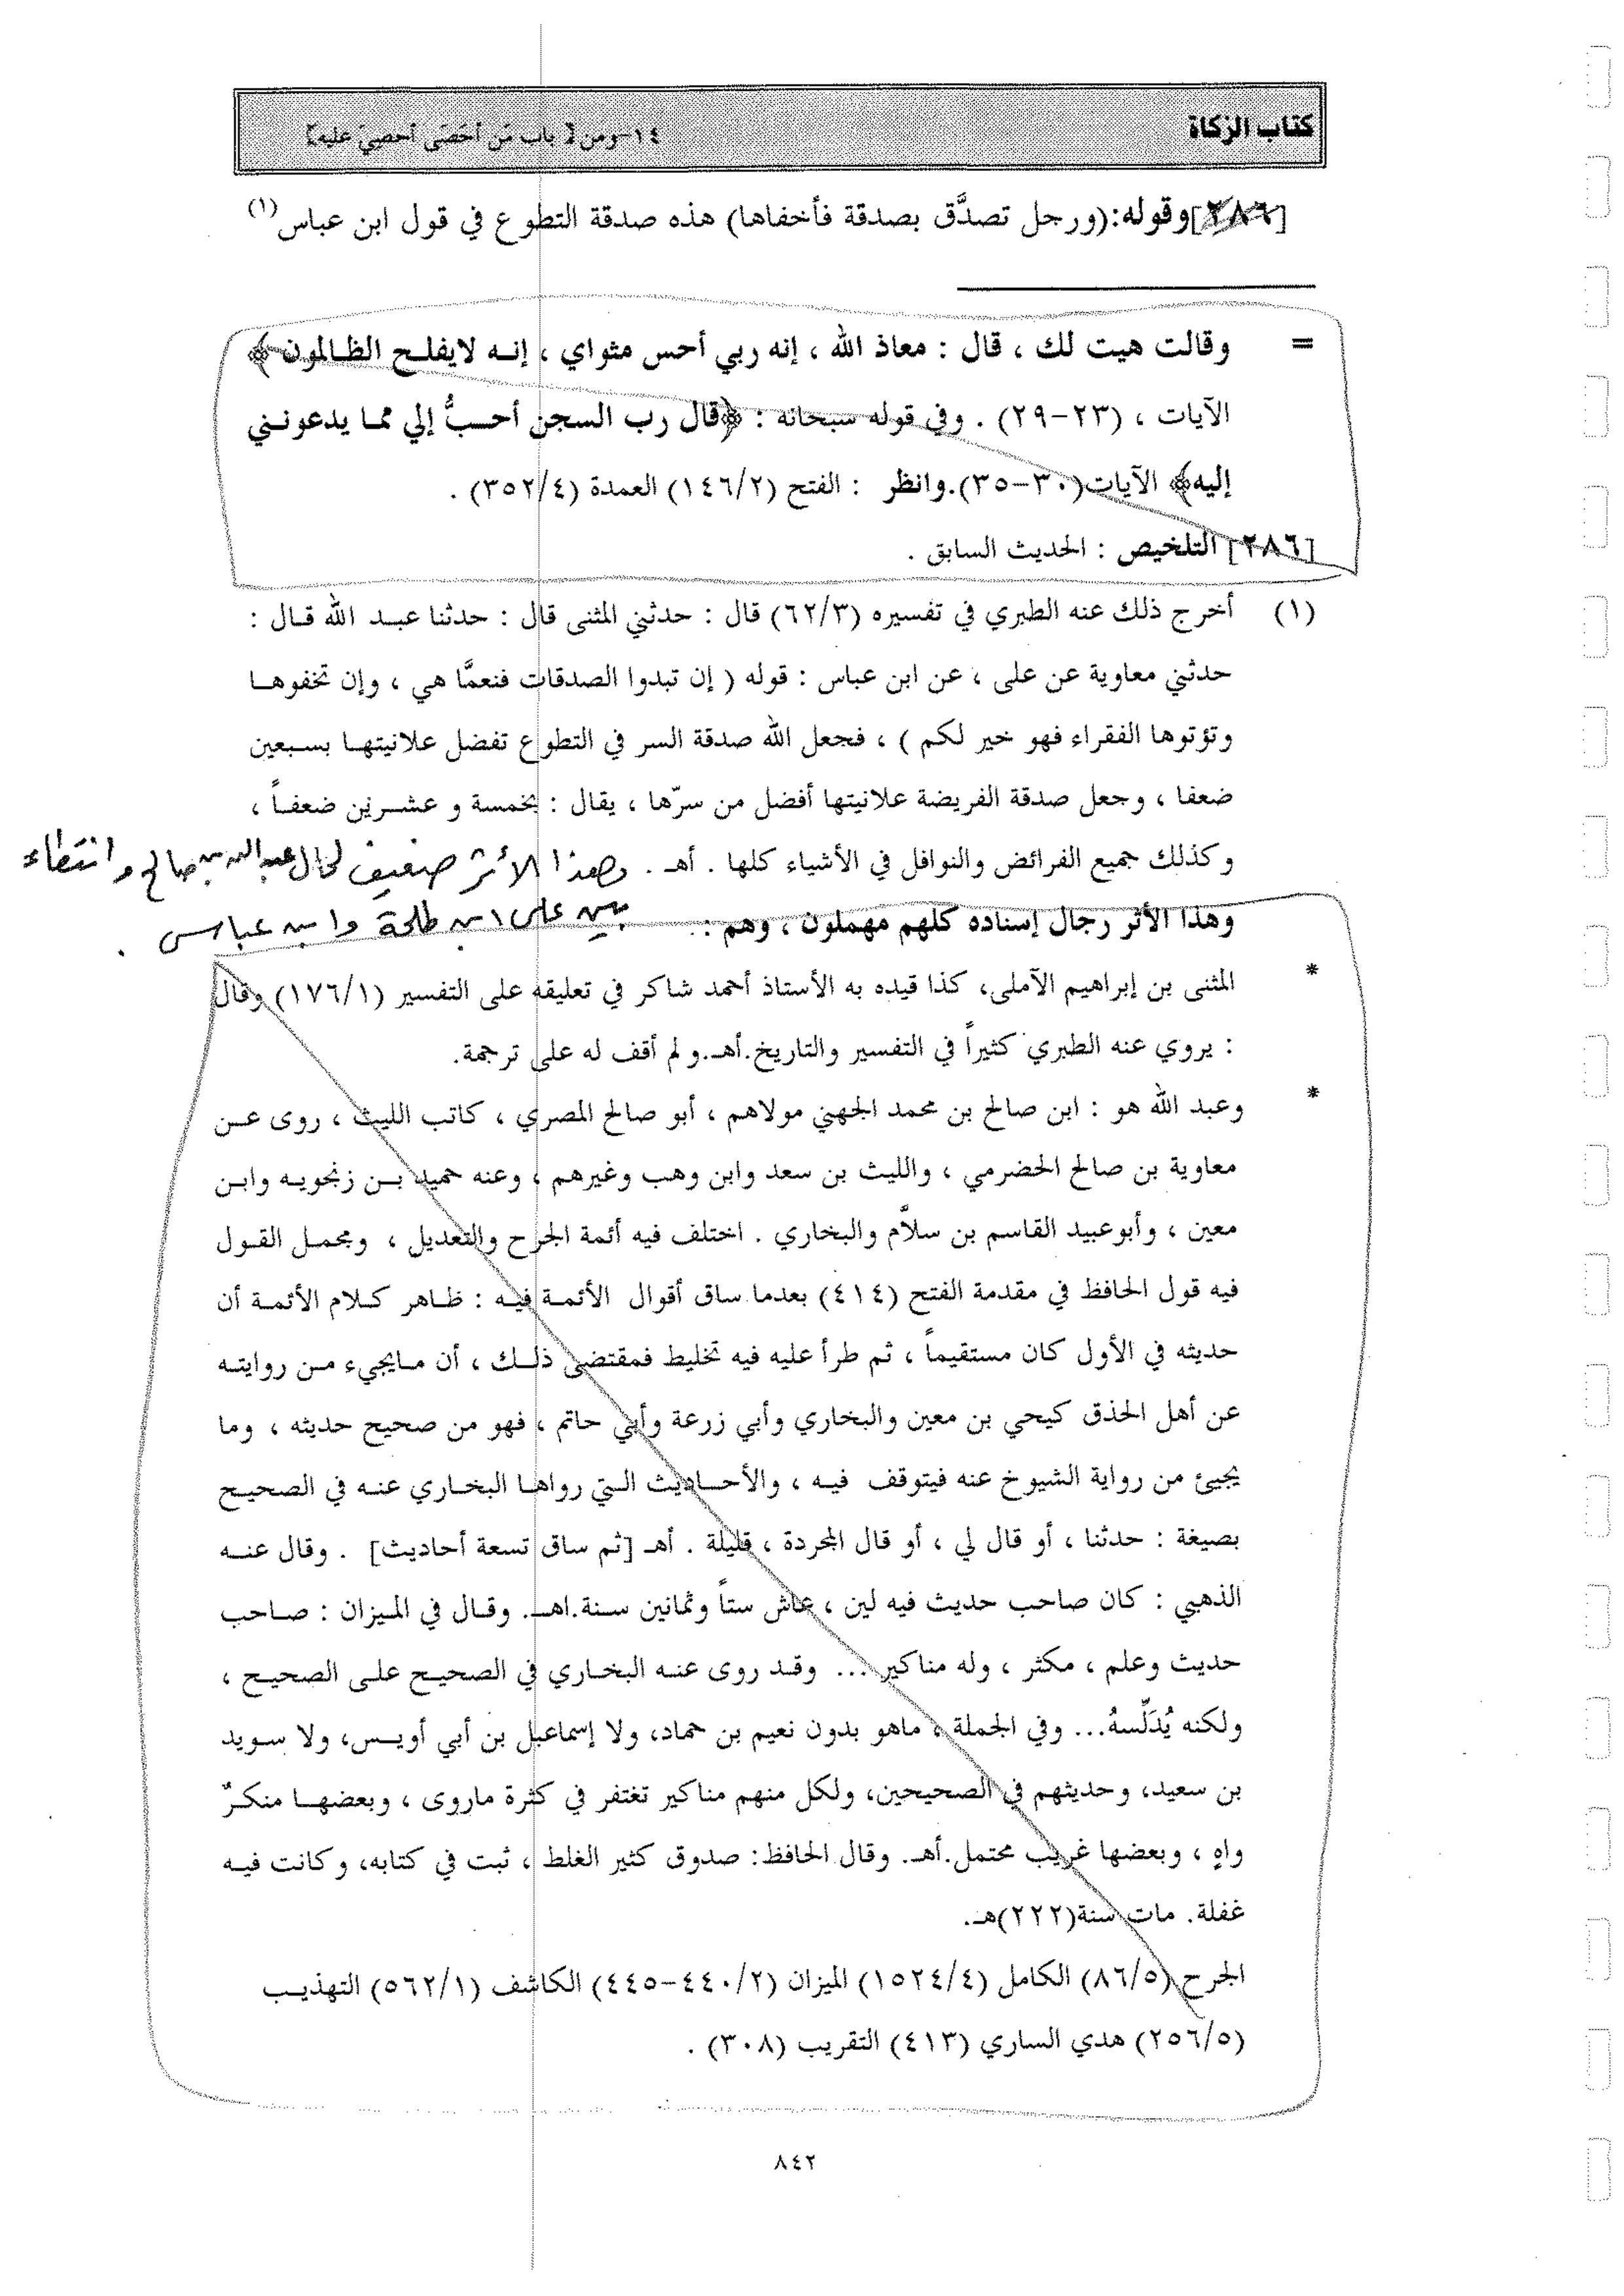 كتاب الزكاة
١٤-ومن [ باب مَن أَحَصَى أحصِيَ عليه]
[٢٨٦]وقوله:(ورجل تصدَّق بصدقة فأخفاها) هذه صدقة التطوع في قول ابن عباس(١)
= وقالت هيت لك ، قال : معاذ الله ، إنه ربي أحس مثواي ، إنـه لايفلـح الظـالمون ﴾
الآيات ، (٢٣-٢٩) . وفي قوله سبحانه : ﴿قال رب السجن أحـبُّ إلي ممـا يدعونـني
إليه﴾ الآيات(٣٠-٣٥).وانظر : الفتح (١٤٦/٢) العمدة (٣٥٢/٤) .
[٢٨٦] التلخيص : الحديث السابق .
(١) أخرج ذلك عنه الطبري في تفسيره (٦٢/٣) قال : حدثني المثنى قال : حدثنا عبـد الله قـال :
حدثني معاوية عن على ، عن ابن عباس : قوله ( إن تبدوا الصدقات فنعمَّا هي ، وإن تخفوهـا
وتؤتوها الفقراء فهو خير لكم ) ، فجعل الله صدقة السر في التطوع تفضل علانيتهـا بسـبعين
ضعفا ، وجعل صدقة الفريضة علانيتها أفضل من سرّها ، يقال : بخمسة و عشـرين ضعفـاً ،
وكذلك جميع الفرائض والنوافل في الأشياء كلها . أهـ . وهذا الأثر ضعيف لحال عبد الله بن صالح وانقطاء
بين على بن طلحة وابن عباس .
وهذا الأثر رجال إسناده كلهم مهملون ، وهم :
* المثنى بن إبراهيم الآملى، كذا قيده به الأستاذ أحمد شاكر في تعليقه على التفسير (١٧٦/١) وقال
: يروي عنه الطبري كثيراً في التفسير والتاريخ.أهـ.و لم أقف له على ترجمة.
* وعبد الله هو : ابن صالح بن محمد الجهني مولاهم ، أبو صالح المصري ، كاتب الليث ، روى عـن
معاوية بن صالح الحضرمي ، والليث بن سعد وابن وهب وغيرهم ، وعنه حميد بـن زنجويـه وابـن
معين ، وأبوعبيد القاسم بن سلاَّم والبخاري . اختلف فيه أئمة الجرح والتعديل ، ومجمـل القـول
فيه قول الحافظ في مقدمة الفتح (٤١٤) بعدما ساق أقوال الأئمـة فيـه : ظـاهر كـلام الأئمـة أن
حديثه في الأول كان مستقيماً ، ثم طرأ عليه فيه تخليط فمقتضى ذلـك ، أن مـايجيء مـن روايتـه
عن أهل الحذق كيحي بن معين والبخاري وأبي زرعة وأبي حاتم ، فهو من صحيح حديثه ، وما
يجيئ من رواية الشيوخ عنه فيتوقف فيـه ، والأحـاديث الـتي رواهـا البخـاري عنـه في الصحيـح
بصيغة : حدثنا ، أو قال لي ، أو قال المجردة ، قليلة . أهـ [ثم ساق تسعة أحاديث] . وقال عنـه
الذهبي : كان صاحب حديث فيه لين ، عاش ستاً وثمانين سـنة.اهـ. وقـال في المـيزان : صـاحب
حديث وعلم ، مكثر ، وله مناكير ... وقـد روى عنـه البخـاري في الصحيـح علـى الصحيـح ،
ولكنه يُدَلّسهُ... وفي الجملة ، ماهو بدون نعيم بن حماد، ولا إسماعيل بن أبي أويـس، ولا سـويد
بن سعيد، وحديثهم في الصحيحين، ولكل منهم مناكير تغتفر في كثرة ماروى ، وبعضهـا منكـرٌ
واهٍ ، وبعضها غريب محتمل.أهـ. وقال الحافظ: صدوق كثير الغلط ، ثبت في كتابه، وكانت فيـه
غفلة. مات سنة(٢٢٢)هـ.
الجرح (٨٦/٥) الكامل (١٥٢٤/٤) الميزان (٤٤٠/٢-٤٤٥) الكاشف (٥٦٢/١) التهذيـب
(٢٥٦/٥) هدي الساري (٤١٣) التقريب (٣٠٨) .
٨٤٢